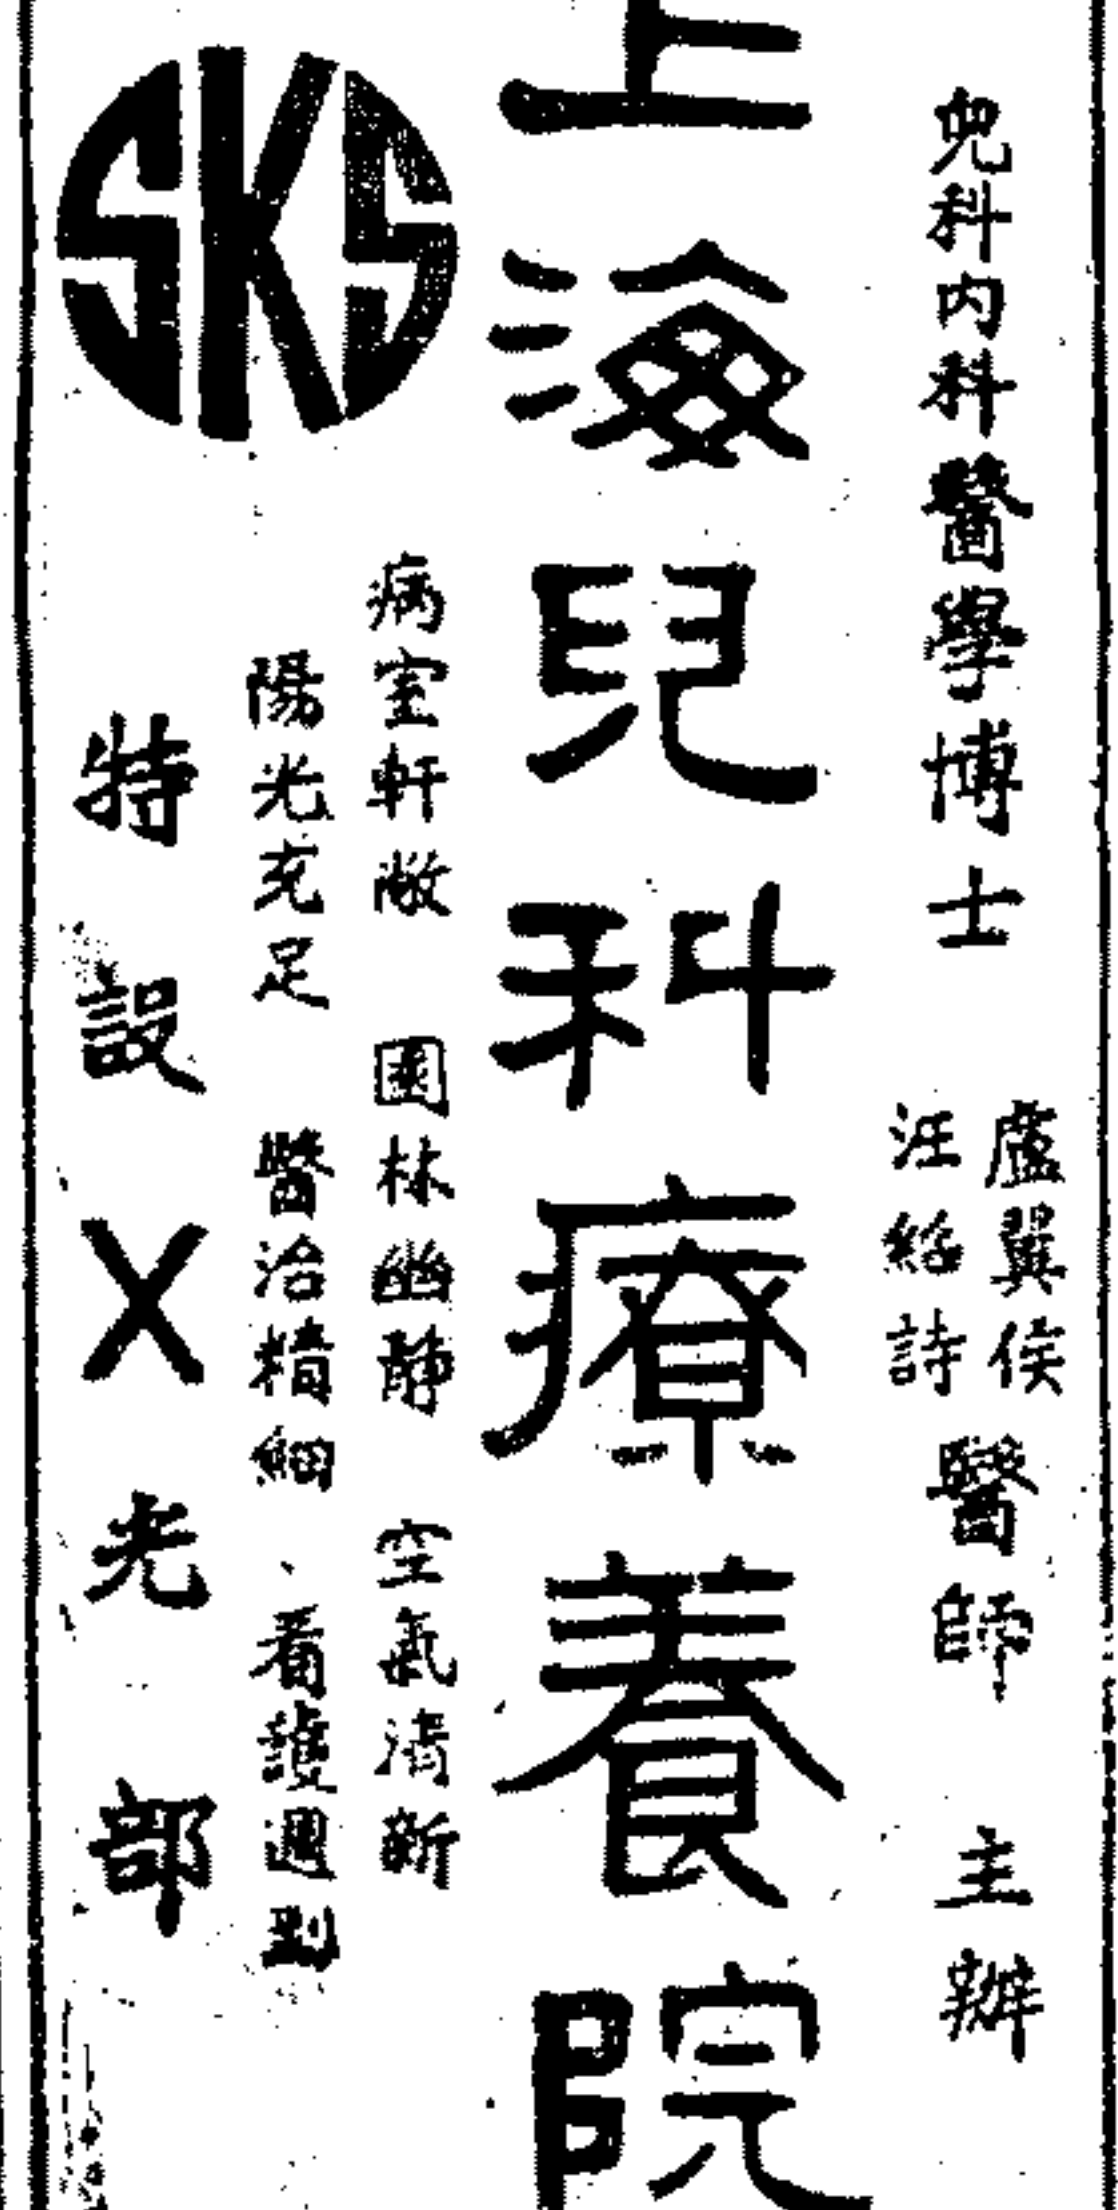 兒科內科醫學博士
盧翼侯
汪紹詩
醫師 主辦
上海兒科療養院
病室軒敞 園林幽靜 空氣清新
陽光充足 醫治精細、看護週到
特設X光部
SKS